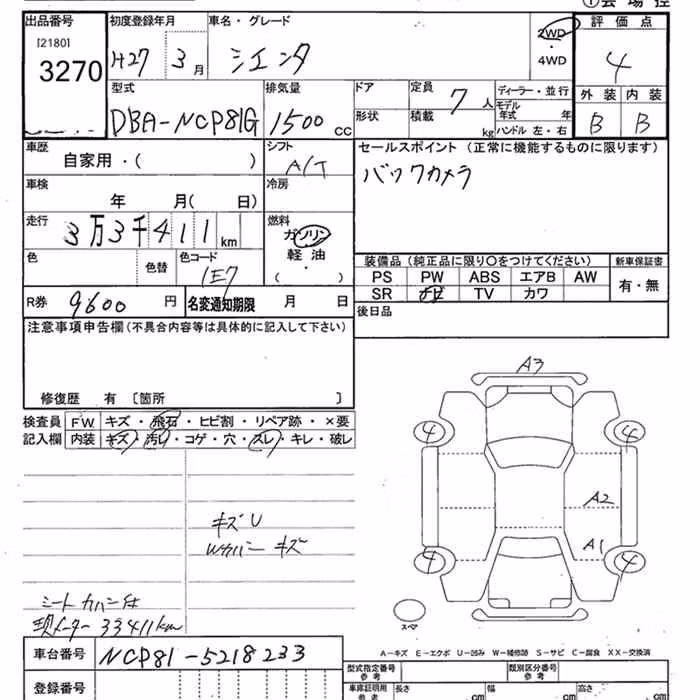 ①会場控
出品番号 初度登録年月 車名・グレード 2WD ・ 4WD 評価点
[2180]
3270 H27 3月 シエンタ 4
外装 内装
B B
型式 排気量 ドア 定員 7人 ディーラー・並行
形状 積載 kg モデル年式 年
DBA-NCP81G 1500cc ハンドル 左・右
車歴 自家用・( ) シフト A/T セールスポイント (正常に機能するものに限ります)
バックカメラ
車検 年 月( 日) 冷房
走行 3万3千411km 燃料 ガソリン
軽油
( ・ )
色 色替 色コード 1E7
装備品(純正品に限り○をつけてください) 新車保証書
PS PW ABS エアB AW 有・無
SR ナビ TV カワ
R券 9600円 名変通知期限 月 日 後日品
注意事項申告欄(不具合内容等は具体的に記入して下さい)
修復歴 有 [箇所 ]
検査員 FW キズ・飛石・ヒビ割・リペア跡・×要
記入欄 内装 キズ・汚レ・コゲ・穴・スレ・キレ・破レ
A3
4 4
A2
A1
4 4
キズU
Wカバー キズ
シートカバー付
現メーター 33411km
スペア
A-キズ E-エクボ U-凹み W-補修跡 S-サビ C-腐食 XX-交換済
車台番号 NCP81-5218233
型式指定番号 参考 類別区分番号 参考
登録番号 車庫証明用 参考 長さ cm 幅 cm 高さ cm